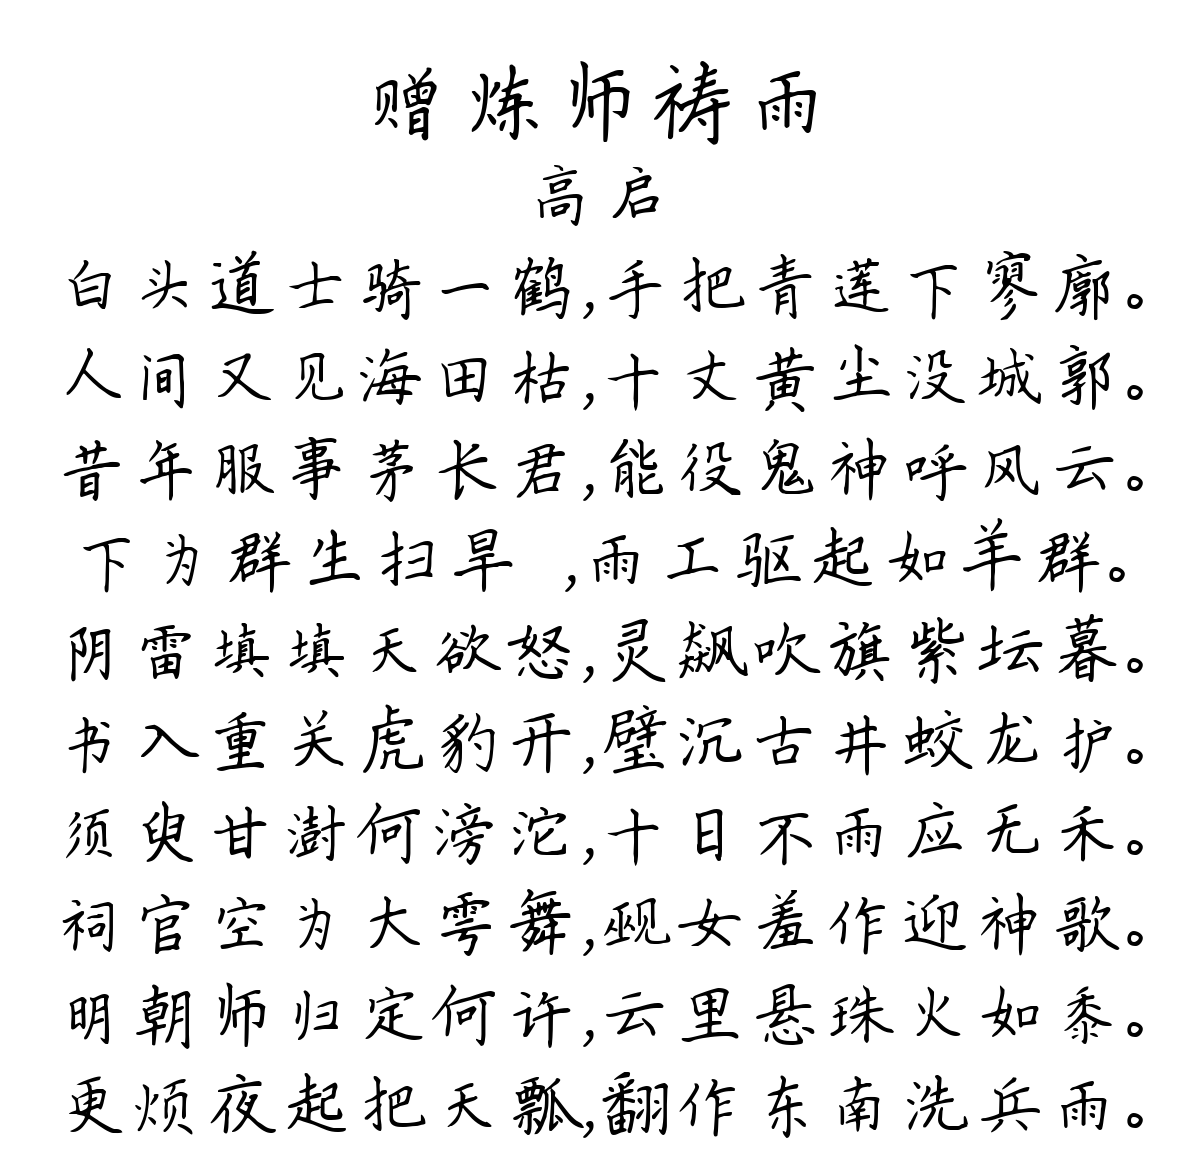 赠炼师祷雨
高启
白头道士骑一鹤,手把青莲下寥廓。
人间又见海田枯,十丈黄尘没城郭。
昔年服事茅长君,能役鬼神呼风云。
下为群生扫旱 ,雨工驱起如羊群。
阴雷填填天欲怒,灵飙吹旗紫坛暮。
书入重关虎豹开,璧沉古井蛟龙护。
须臾甘澍何滂沱,十日不雨应无禾。
祠官空为大雩舞,觋女羞作迎神歌。
明朝师归定何许,云里悬珠火如黍。
更烦夜起把天瓢,翻作东南洗兵雨。